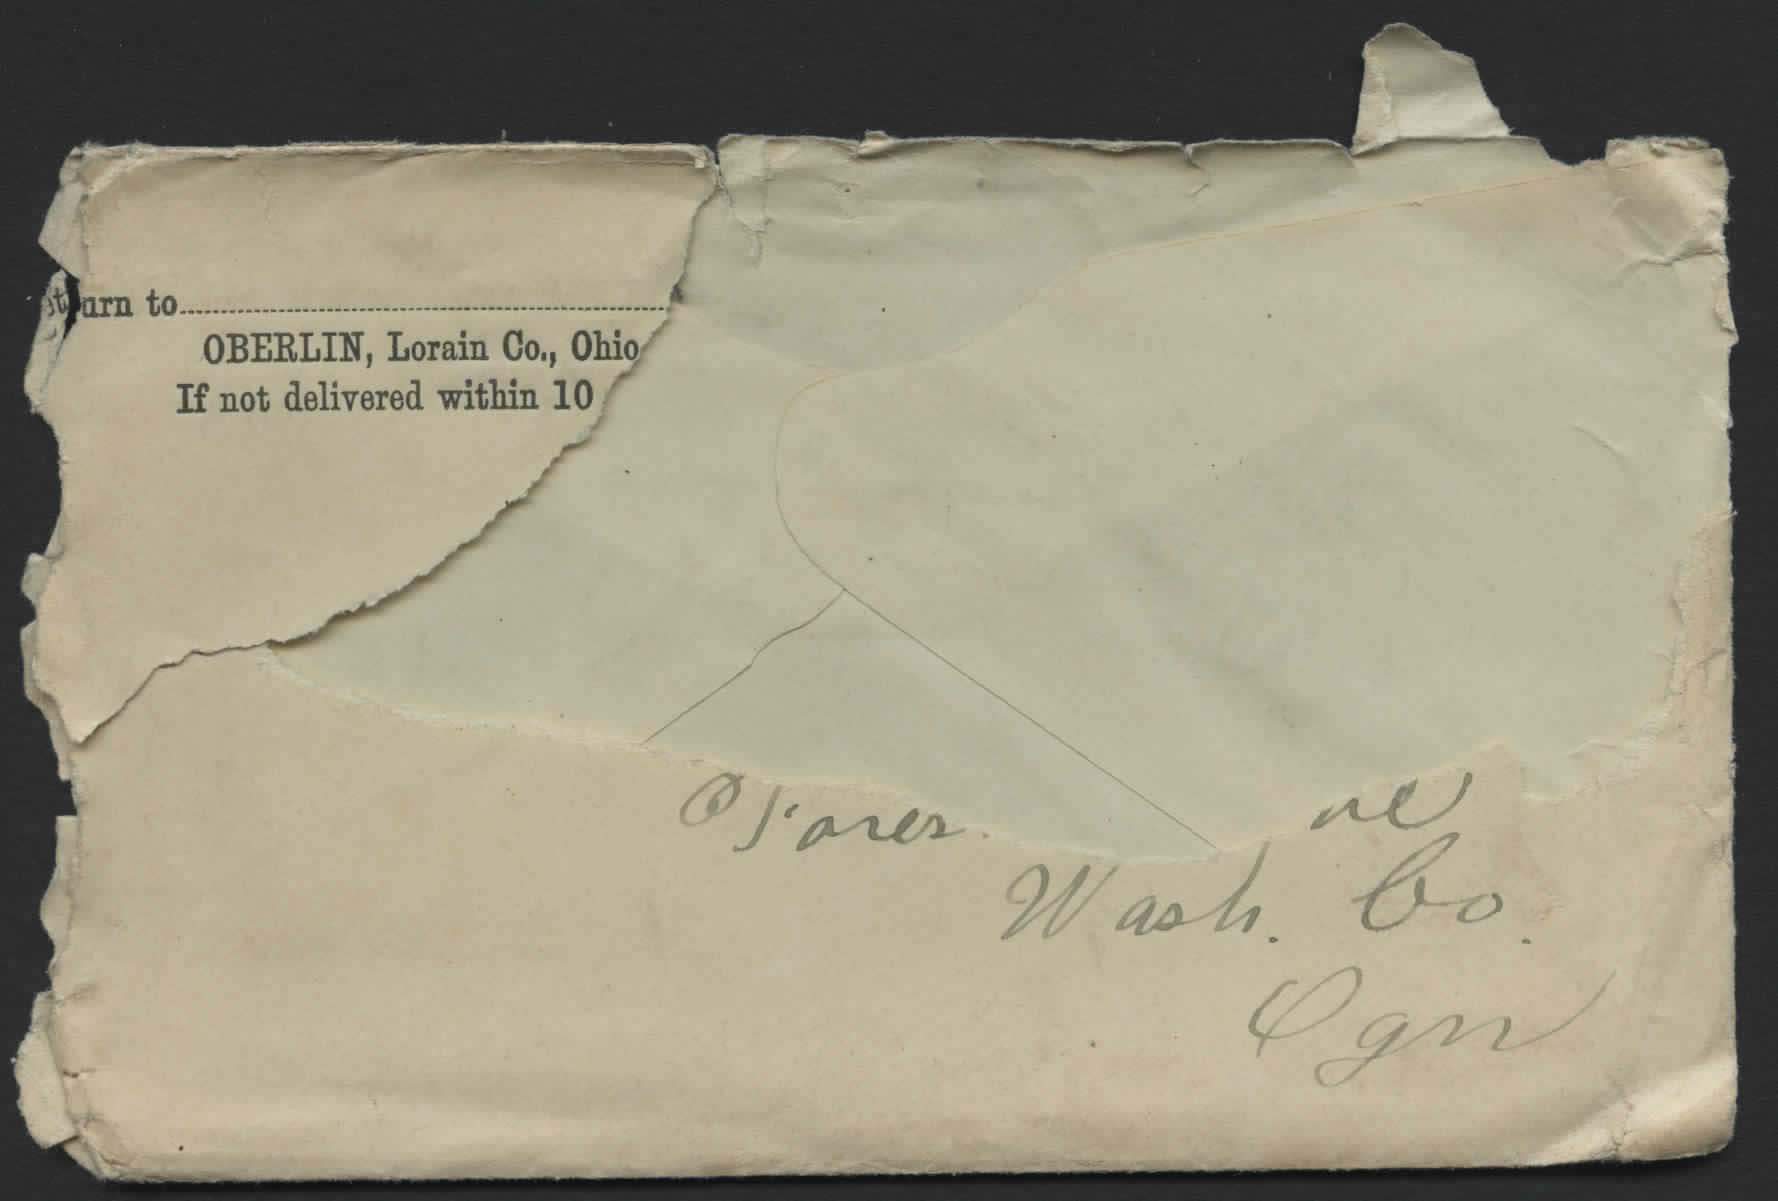 eturn to
OBERLIN, Lorain Co., Ohio
If not delivered within 10
Wash. Co.
Ogn